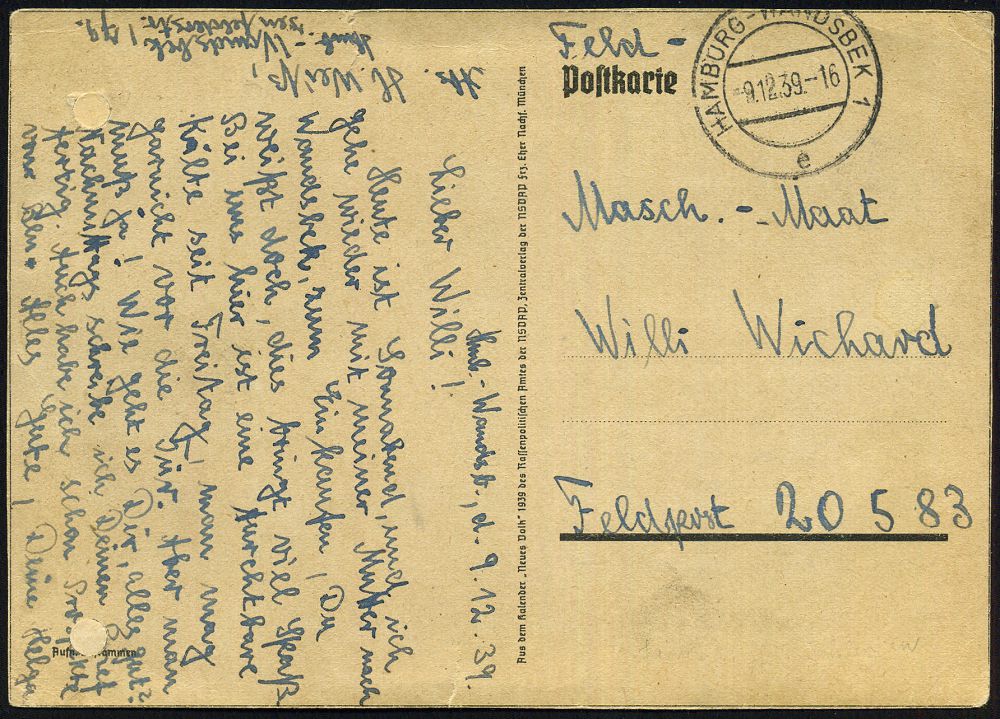 Feld-
Postkarte
HAMBURG-WANDSBEK 1
-9.12.39.-16
e
Masch.-Maat
Willi Wichard
Feldpost 20 5 83
Aus dem Kalender „Neues Volk" 1939 des Rassenpolitischen Amtes der NSDAP, Zentralverlag der NSDAP Frz. Eher Nachf. München
Abs. H. Weiß,
Hamb.-Wandsbek 1,
Hmb.-Wandsb., d. 9.12.39.
Lieber Willi!
Heute ist Sonnabend, und ich
gehe wieder mit meiner Mutter nach
Wandsbek, zum Einkaufen, Du
weißt doch, dies bringt viel Spaß
Bei uns hier ist eine furchtbare
Kälte seit Freitag, man mag
garnicht vor die Tür. Aber man
muß ja! Wie geht es Dir, alles gut?
Nachmittags schreibe ich Deinen Brief
fertig. Auch habe ich schon
von den Alles Gute, Deine Helga
Aufn. ammen